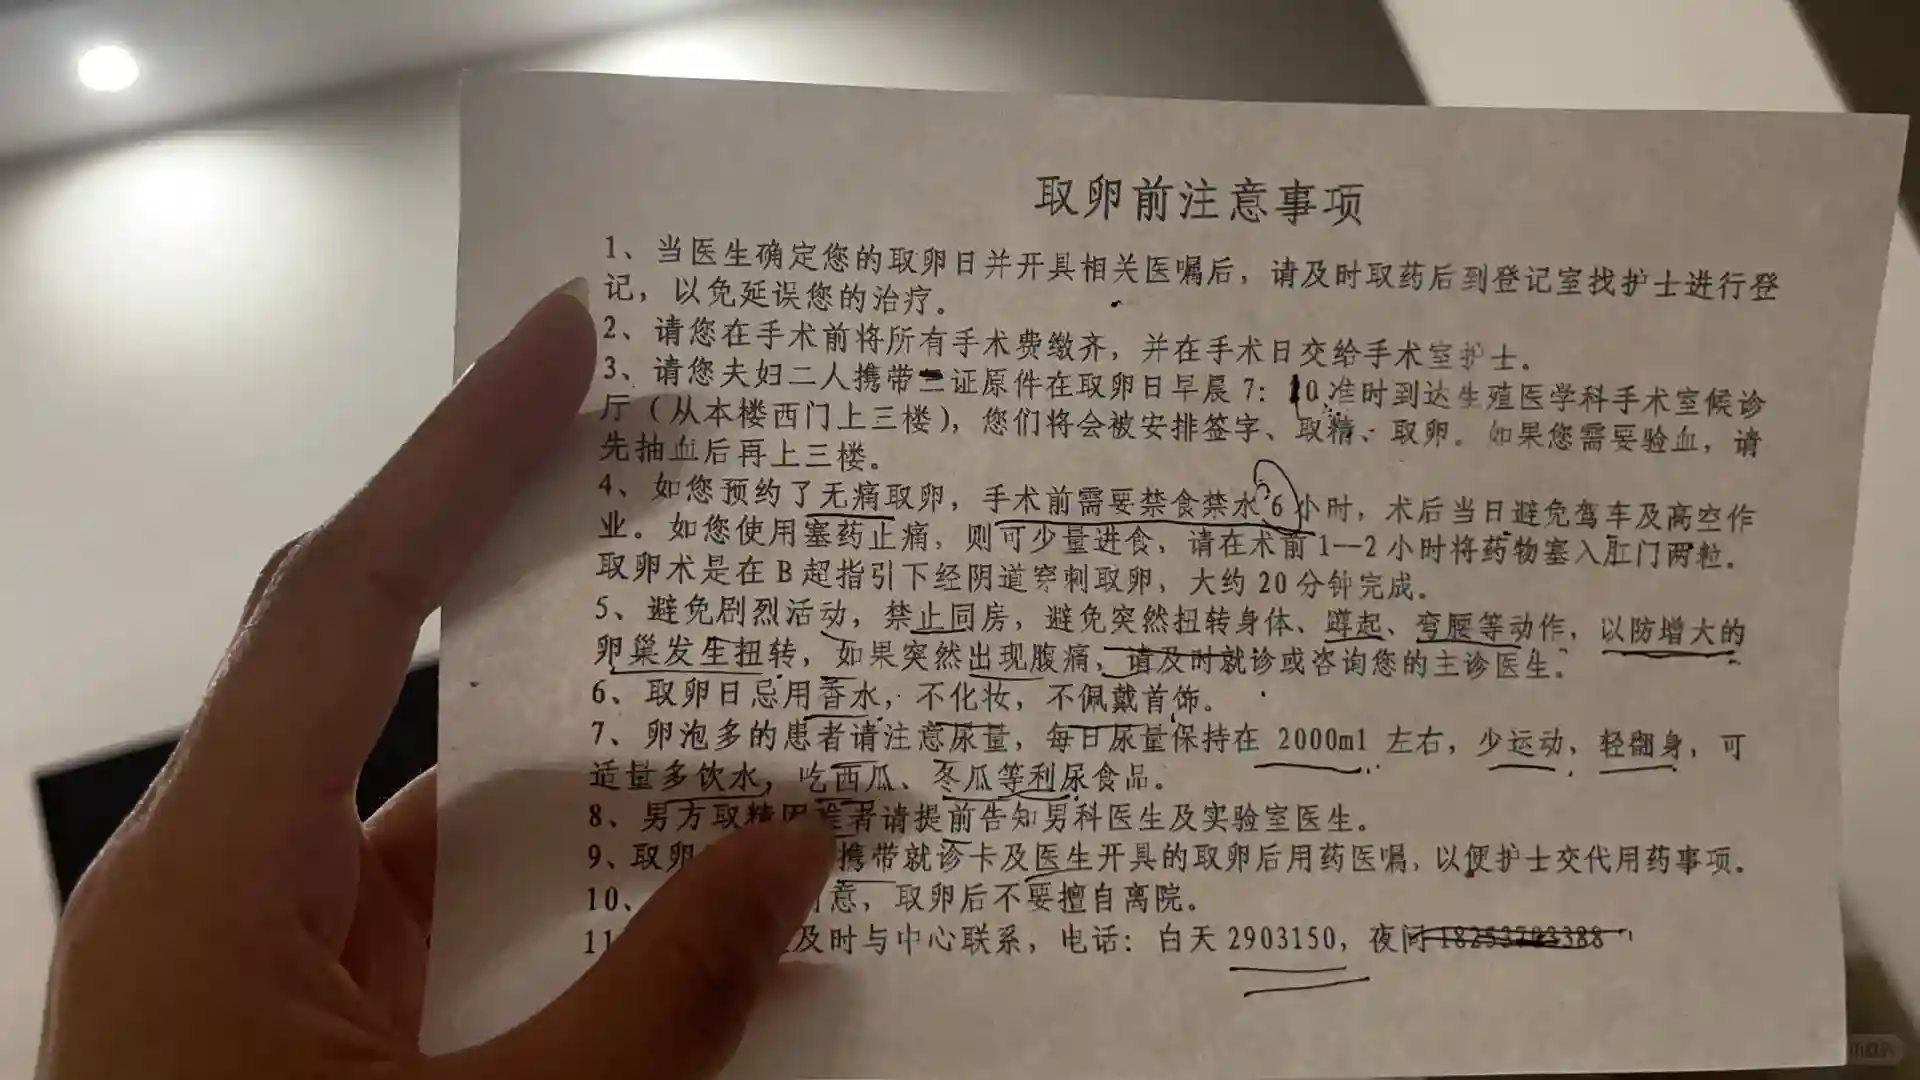 取卵前注意事项
1、当医生确定您的取卵日并开具相关医嘱后，请及时取药后到登记室找护士进行登
记，以免延误您的治疗。
2、请您在手术前将所有手术费缴齐，并在手术日交给手术室护士。
3、请您夫妇二人携带三证原件在取卵日早晨7：10准时到达生殖医学科手术室候诊
厅（从本楼西门上三楼），您们将会被安排签字、取精、取卵。如果您需要验血，请
先抽血后再上三楼。
4、如您预约了无痛取卵，手术前需要禁食禁水6小时，术后当日避免驾车及高空作
业。如您使用塞药止痛，则可少量进食，请在术前1--2小时将药物塞入肛门两粒。
取卵术是在B超指引下经阴道穿刺取卵，大约20分钟完成。
5、避免剧烈活动，禁止同房，避免突然扭转身体、蹲起、弯腰等动作，以防增大的
卵巢发生扭转，如果突然出现腹痛，请及时就诊或咨询您的主诊医生。
6、取卵日忌用香水，不化妆，不佩戴首饰。
7、卵泡多的患者请注意尿量，每日尿量保持在2000ml左右，少运动，轻翻身，可
适量多饮水，吃西瓜、冬瓜等利尿食品。
8、男方取精困难者请提前告知男科医生及实验室医生。
9、取卵 携带就诊卡及医生开具的取卵后用药医嘱，以便护士交代用药事项。
10、 意，取卵后不要擅自离院。
11 及时与中心联系，电话：白天2903150，夜间